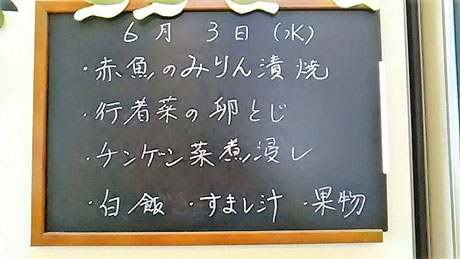 6月 3日(水)
・赤魚のみりん漬焼
・行者菜の卵とじ
・チンゲーン菜煮浸し
・白飯 ・すまし汁 ・果物